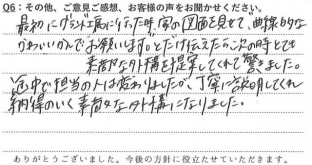 Q6：その他、ご意見ご感想、お客様の声をお聞かせください。
最初にグランド展に行った時、家の図面を見せて、曲線的な
かわいいかんじでお願いします。とだけ伝えたら、次の時とても
素敵な外構を提案してくれて驚きました。
途中で担当の人は変わりましたが、丁寧に説明してくれ
納得のいく素敵な外構になりました。
ありがとうございました。今後の方針に役立たせていただきます。